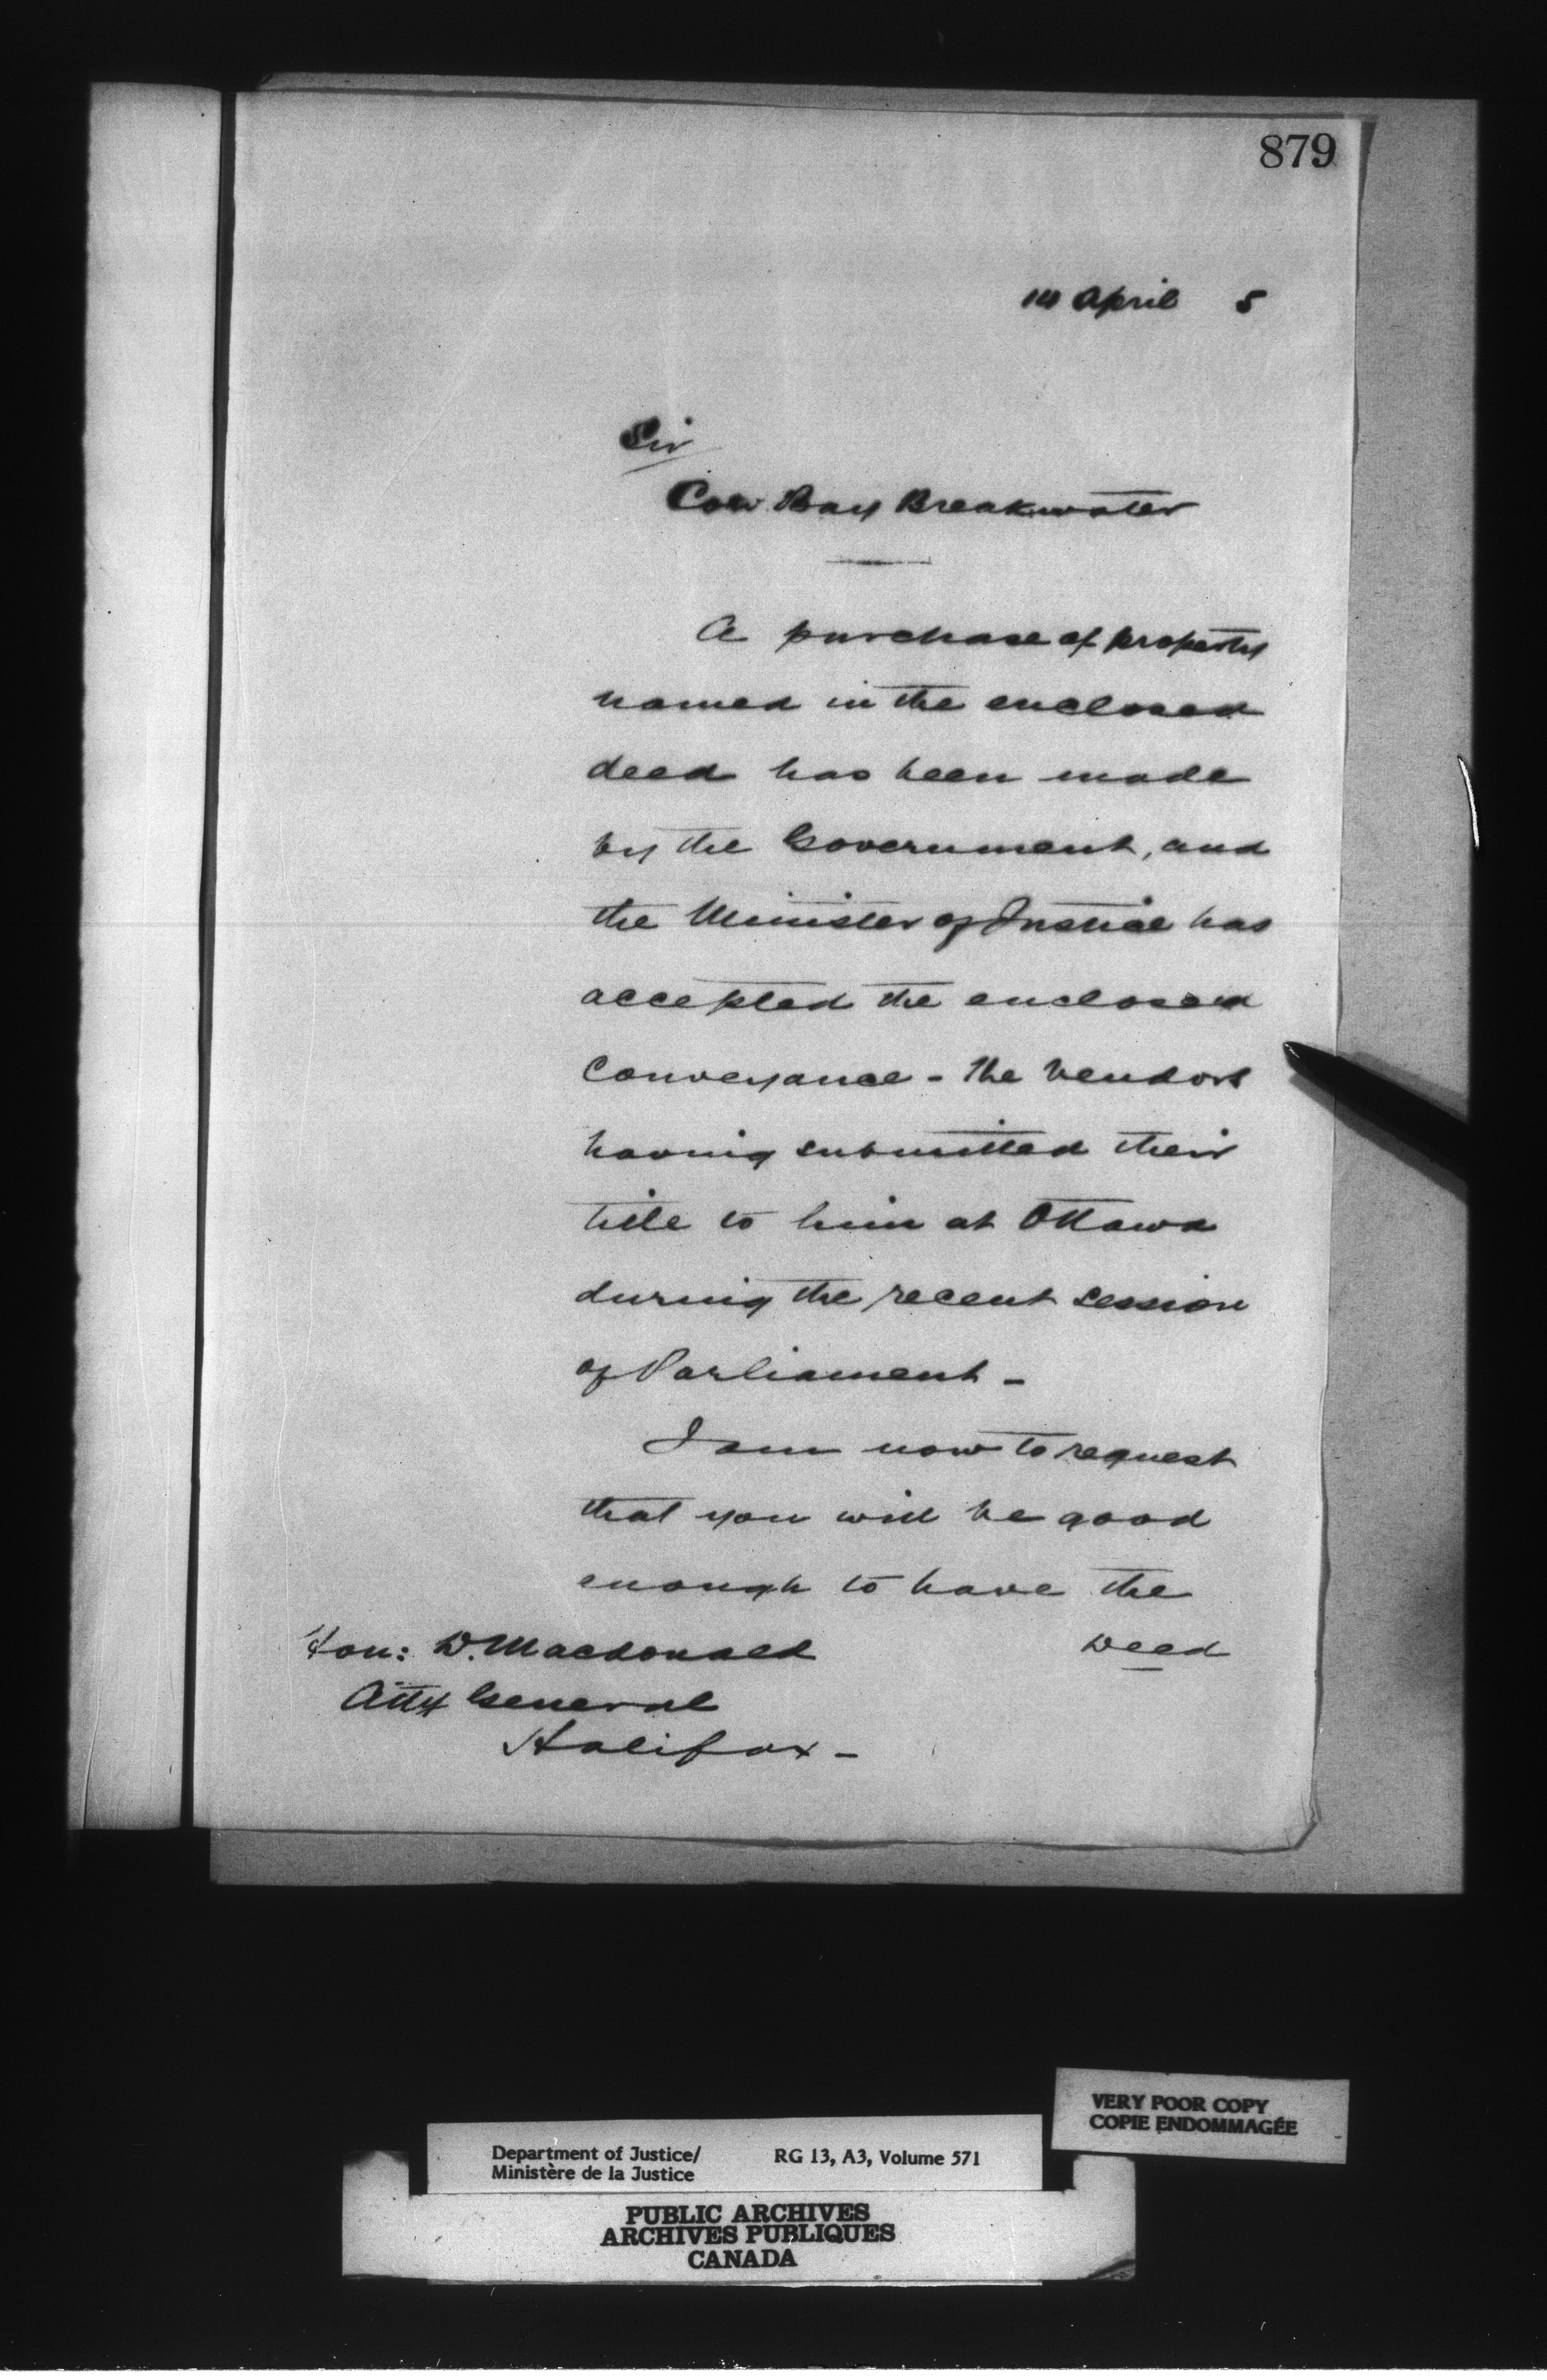 879
14 April 5
Sir
Cow Bay Breakwater
A purchase of property
named in the enclosed
deed has been made
by the Government, and
the Minister of Justice has
accepted the enclosed
Conveyance - the Vendors
having submitted their
title to him at Ottawa
during the recent session
of Parliament -
I am now to request
that you will be good
enough to have the
Deed
Hon: D. Macdonald
Atty General
Halifax -
VERY POOR COPY
COPIE ENDOMMAGÉE
Department of Justice/ RG 13, A3, Volume 571
Ministère de la Justice
PUBLIC ARCHIVES
ARCHIVES PUBLIQUES
CANADA